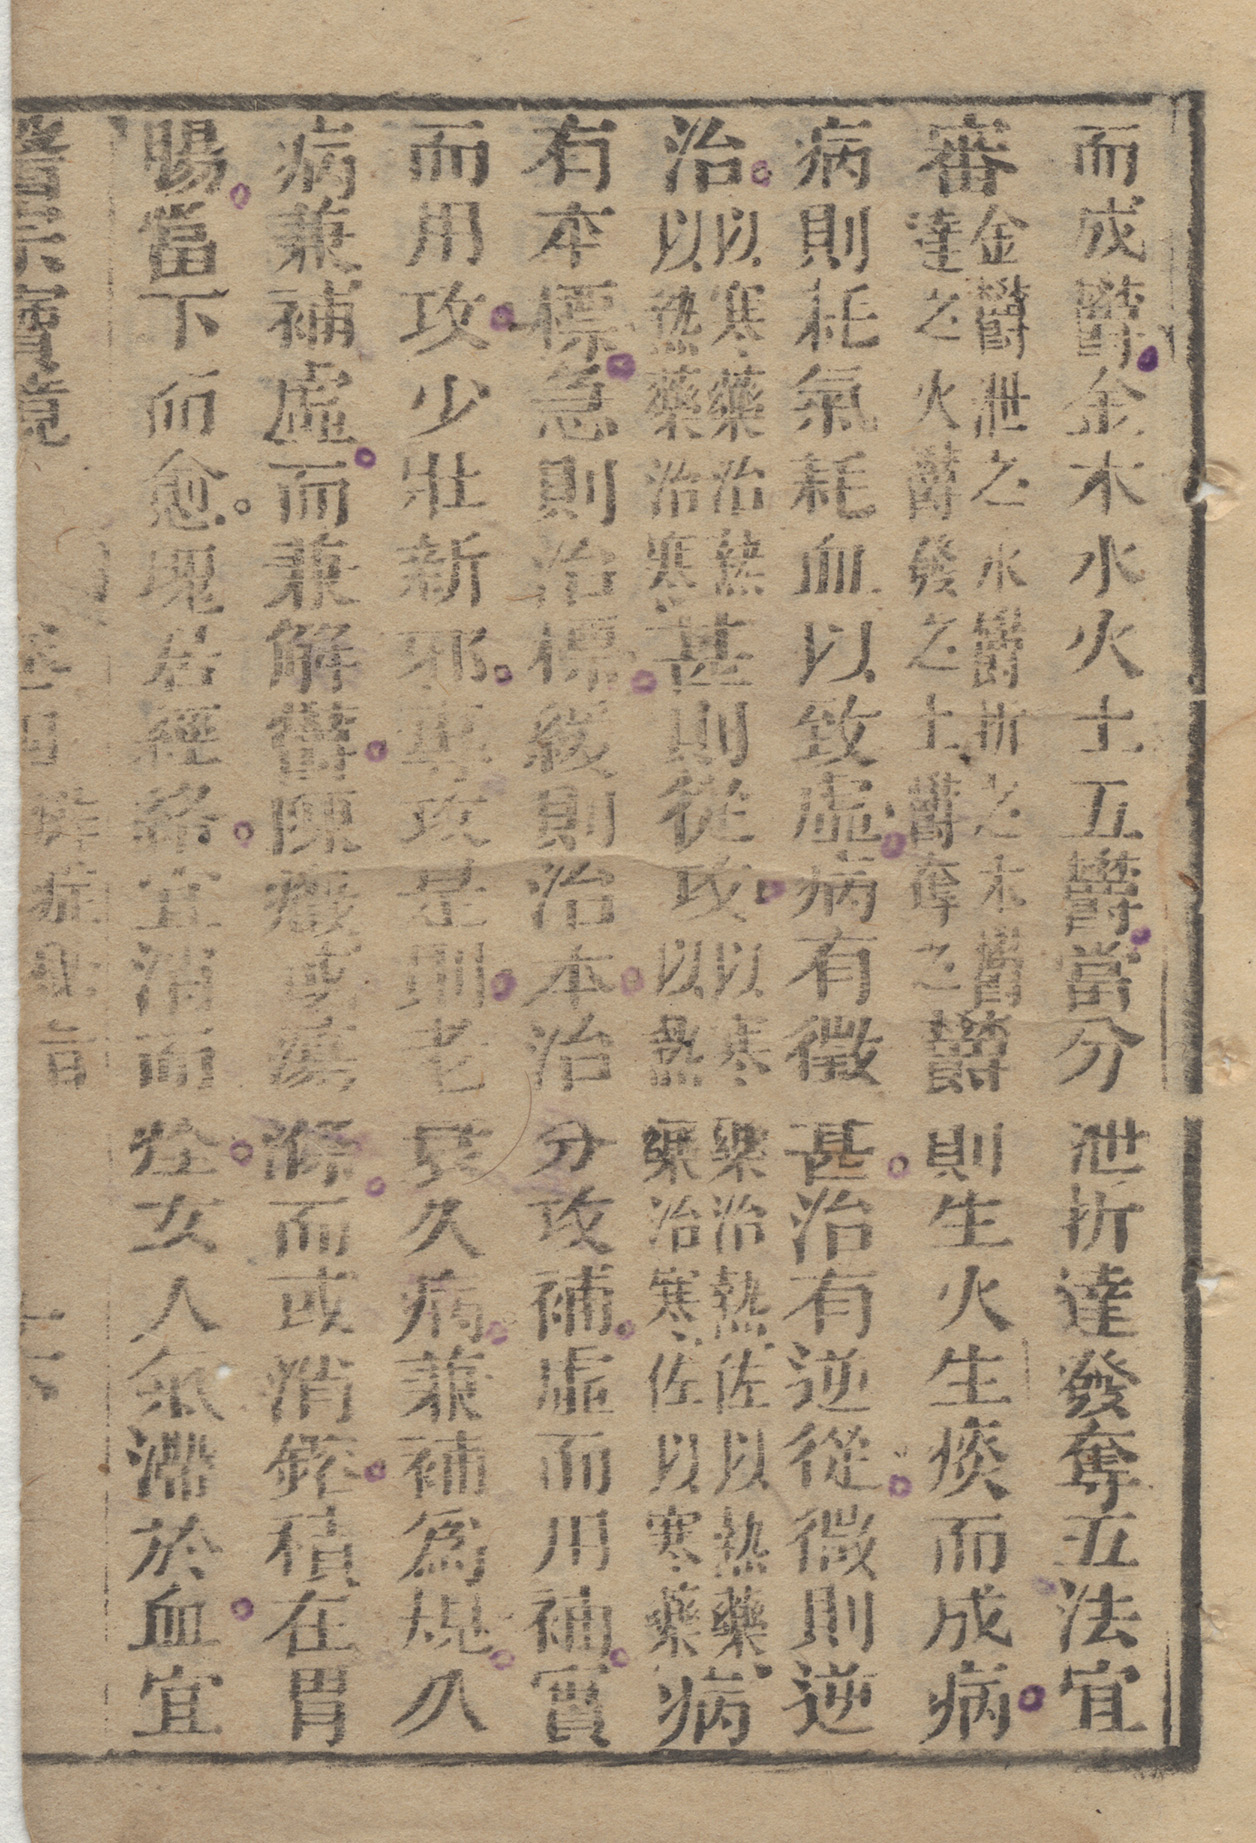 而成欝金木水火土五欝當分泄折達發奪五法宜
審金欝泄之水欝折之木欝達之火欝發之土欝奪之欝則生火生痰而成病
病則耗氣耗血以致虛病有微甚治有逆從微則逆
治以寒藥治熱以熱藥治寒甚則從攻以寒藥治熱佐以熱藥以熱藥治寒佐以寒藥病
有本標急則治標緩則治本治分攻補虛而用補實
而用攻少壯新邪專攻是則老衰久病兼補爲規久
病兼補虛而兼解欝陳癥或癘滌而或消磨積在胃
腸當下而愈塊居經絡宜消而痊女人氣滯於血宜
醫宗寶鏡